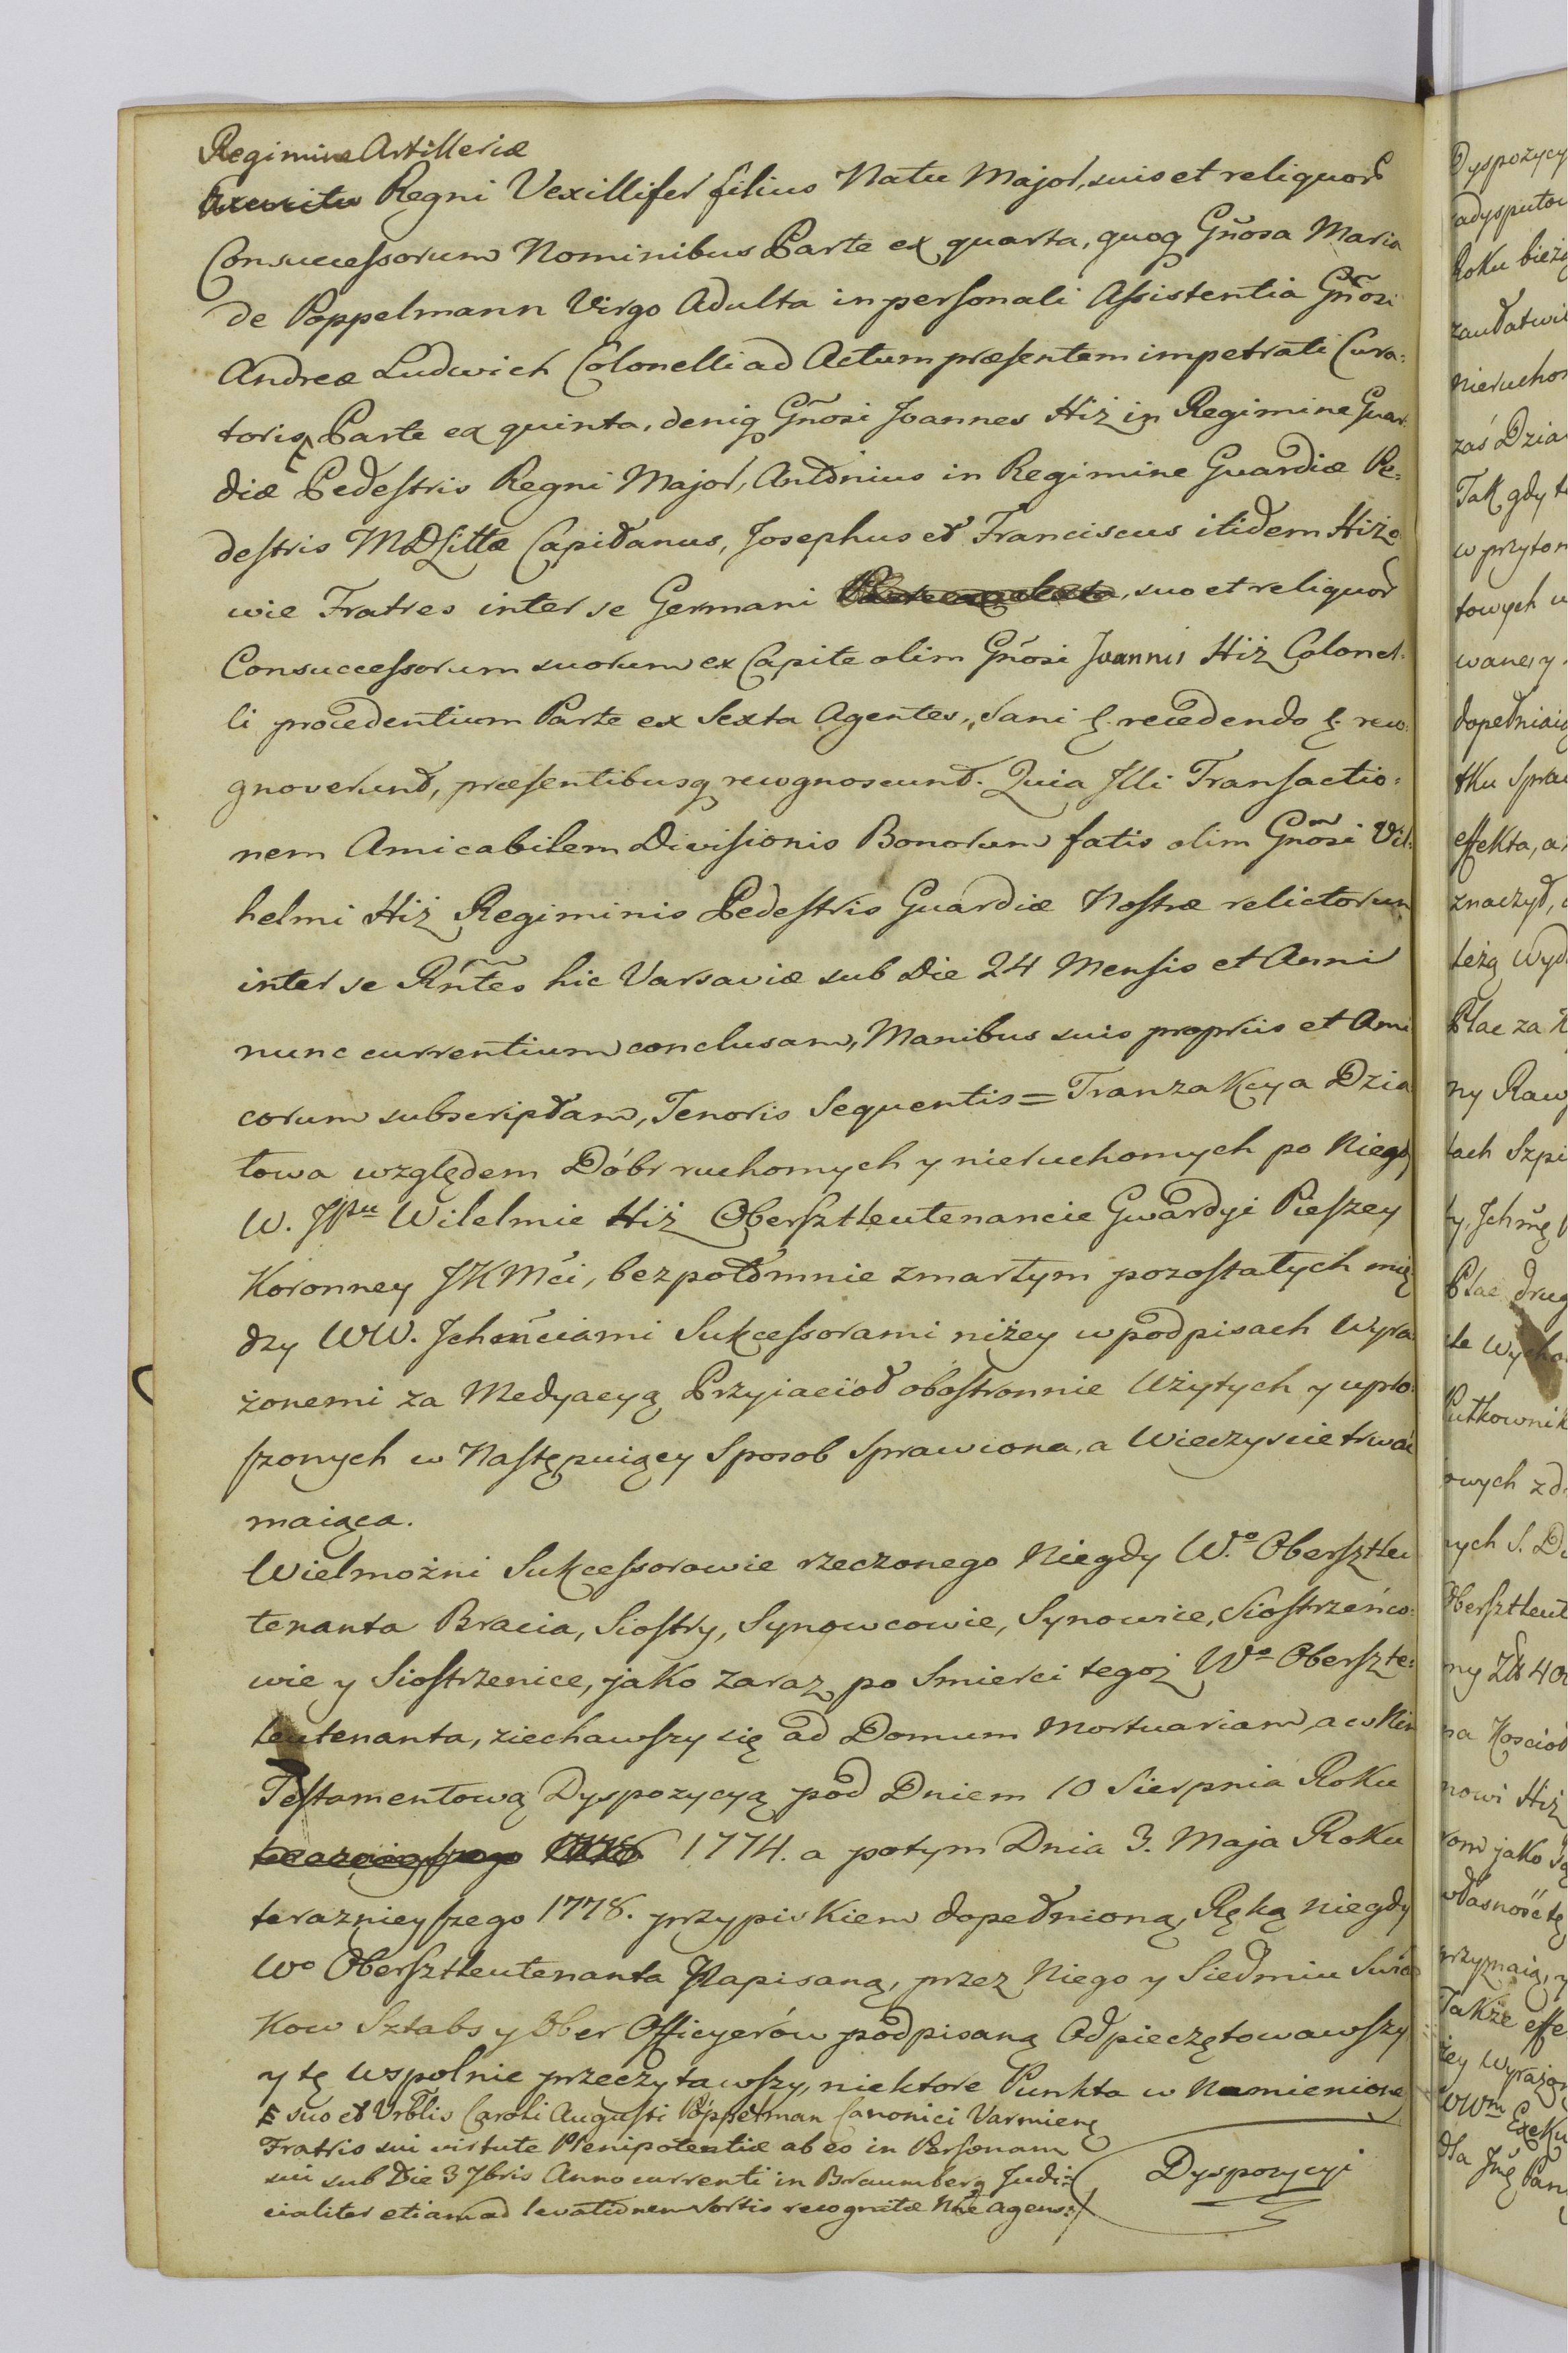 Regimine Artilleriæ
Regni Vexillifer filius Natu Major, suis et reliquor
Consuccessorum Nominibus Parte ex quarta, quoq Gñosa Maria
de Poppelmann Virgo Adulta in personali Assistentia Gñosi
Andreæ Ludwich Colonelli ad Actum præsentem impetrati Cura:
toris Parte ex quinta, deniq Gñosi Joannes Hiż in Regimine Guar:
diæ Pedestris Regni Major, Antonius in Regimine Guardiæ Pe:
destris MDLittæ Capitanus, Josephus et Franciscus itidem Hiżo
wie Fratres inter se Germani, suo et reliquor
Consuccessorum suorum ex Capite olim Gñosi Joannis Hiż Colonel:
li procedentium Parte ex Sexta Agentes, Sani p. recedendo p. reco:
gnoverunt, præsentibusq recognoscunt. Quia Illi Transactio:
nem Amicabilem Divisionis Bonorum fatis olim Gñosi Vil:
helmi Hiż Regiminis Pedestris Guardiæ Nostræ relictorum
inter se Rñtes hic Varsaviæ sub Die 24 Mensis et Anni
nunc currentium conclusam, Manibus suis propriis et Ami
corum subscriptam, Tenoris Sequentis = Tranzakcya Dzia
łowa względem Dóbr ruchomych y nieruchomych po Niegdy
W. JPanu Wilelmie Hiż Obersztleutenancie Gwardyi Pieszey
Koronney JKMći, bezpotomnie zmarłym pozostałych mię
dzy WW. Jchmściami Sukcessorami niżey w podpisach Wyra
żonemi za Medyacyą Przyiacioł obostronnie Użytych y upro:
szonych w Następuiący Sposob Sprawiona, a Wieczyście trwać
maiąca.
Wielmożni Sukcessorowie rzeczonego Niegdy W.º Obersztleu
tenanta Bracia, Siostry, Synowcowie, Synowice, Siostrzeńco:
wie y Siostrzenice, jako zaraz po Smierci tegoż Wº Oberszte:
leutenanta, ziechawszy się ad Domum Mortuariam, a w Nim
Testamentową Dyspozycyą pod Dniem 10 Sierpnia Roku
1774. a potym Dnia 3. Maja Roku
teraznieyszego 1778. przypiskiem dopełnioną, Ręką niegdy
Wº Obersztleutenanta Napisaną, przez Niego y Siedmiu Swiad
kow Sztabs y Ober Officyerów podpisaną Odpieczętowawszy
y tę wspolnie przeczytawszy, niektore Punkta w Namienioney
suo et Vrblis Caroli Augusti Poppelman Canonici Varmien
Fratris sui virtute Plenipotentiæ ab eo in Personam
sui sub Die 3 7bris Anno currenti in Braumberg Judi:
cialiter etiam ad levationem Sortis recognitæ Nñe agens:
Dyspozycyi